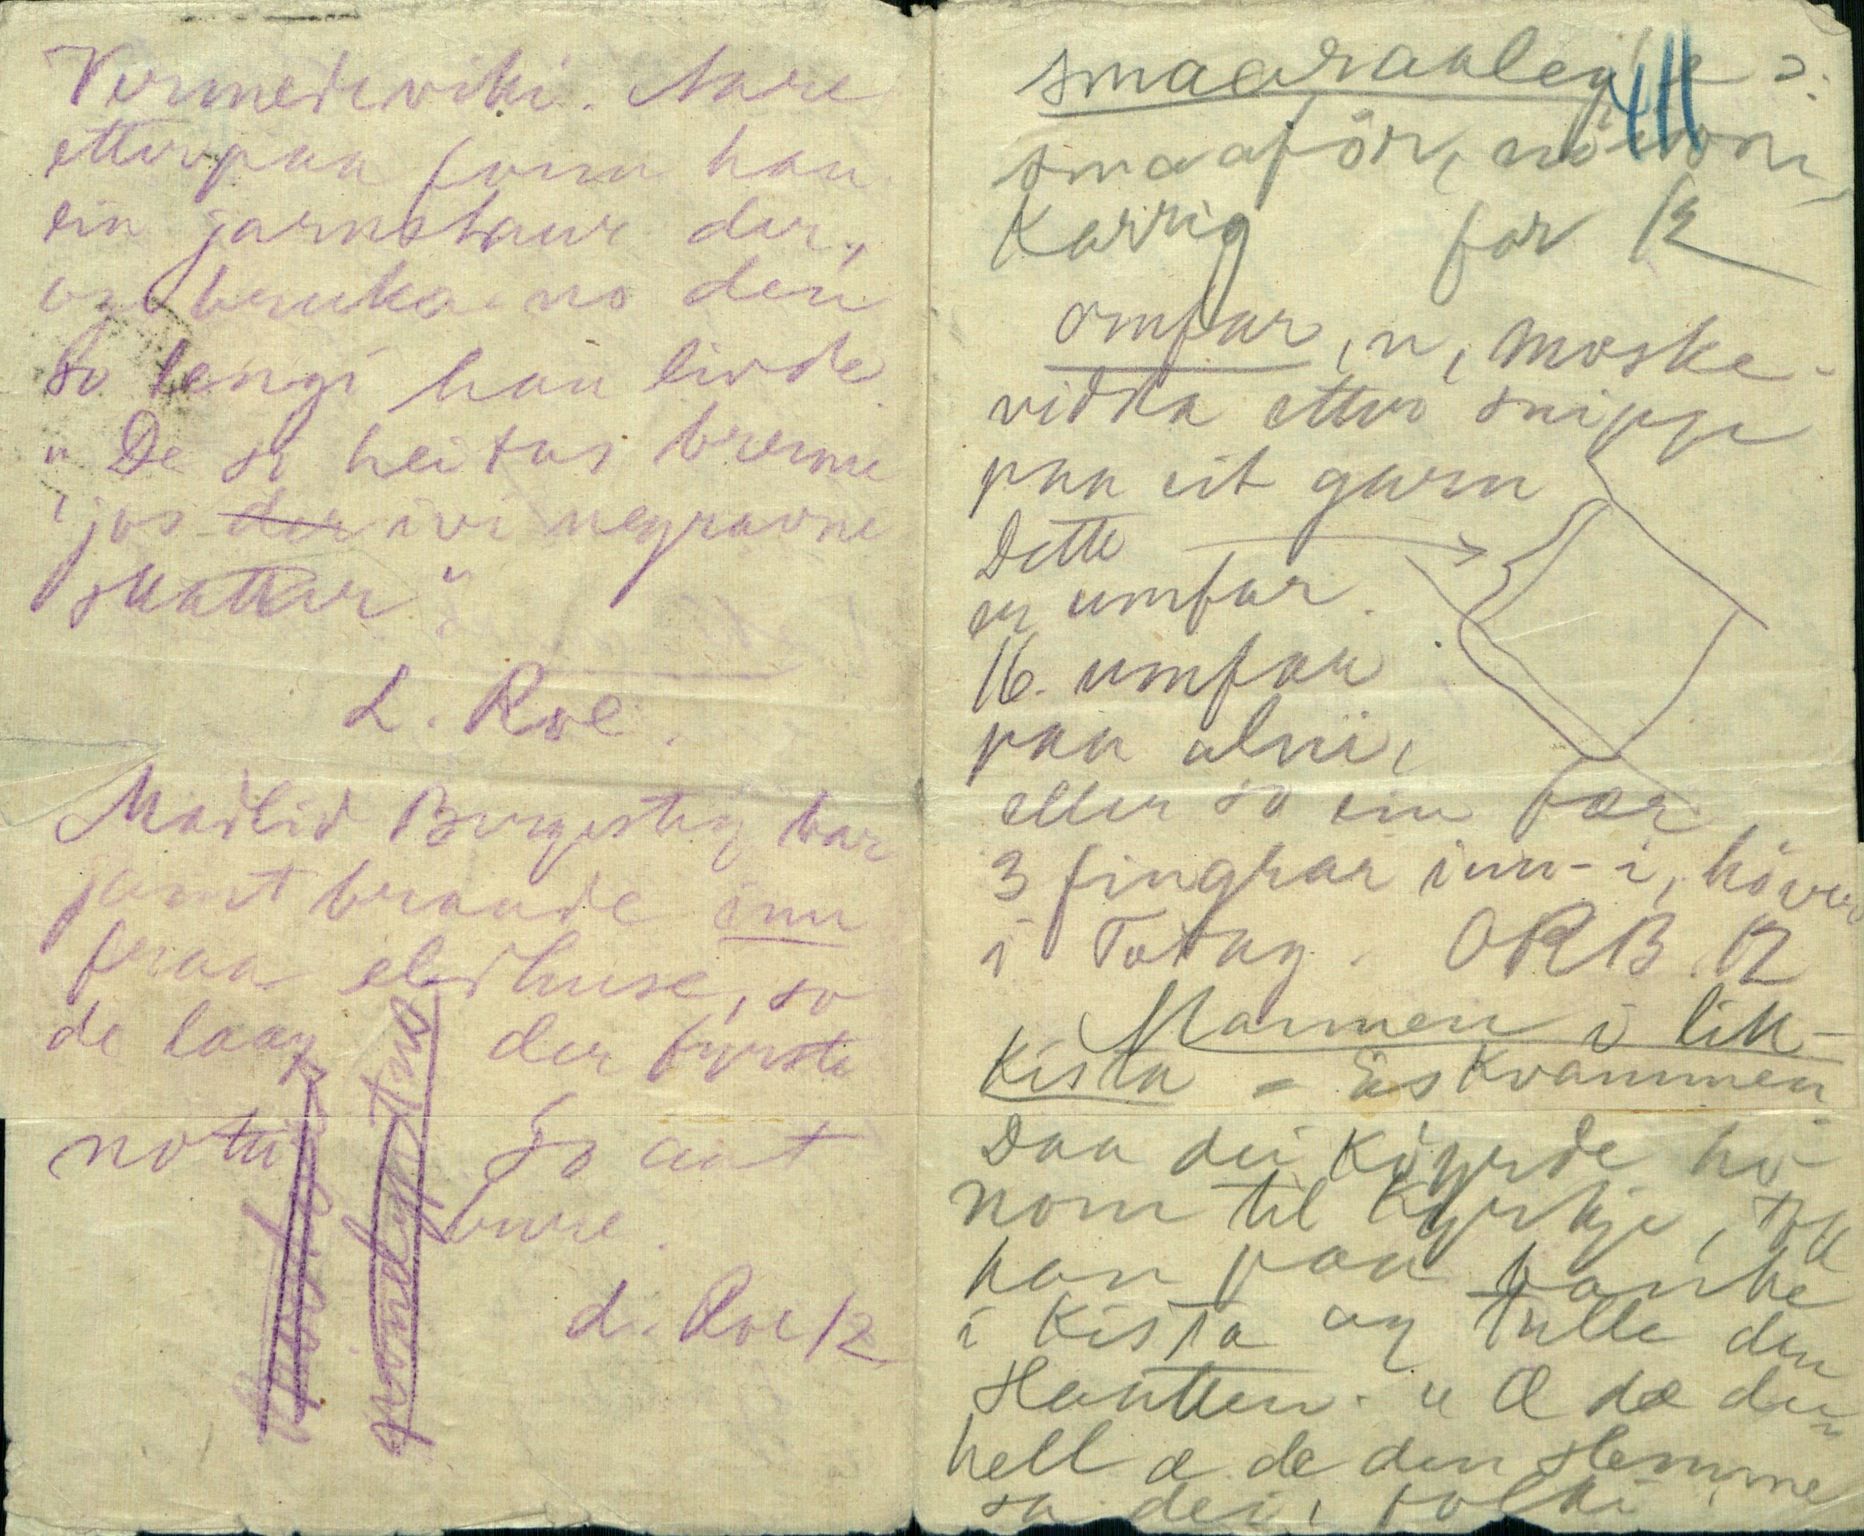 Vermedeviki. Aare
etterpaa fonn han
ein jarnstaur der,
og bruka no den
so lengi han livde.
"De si heitas brenne
i jos der ivi negravne
skatter."
L. Roe.
Madlid Borgesteig bar
jamt brande inn
fraa eldhuse, so
de laag der fyrste
notti So aat
burre.
L. Roe 12
smaaraaleg
smaaför, nöisom,
Karrig for 12
omfar, n, moske-
vidda etter snipp
paa eit garn
Dette
er umfar.
16. umfar
paa alni,
eller so ein fær
3 fingrar inn-i, höver
i Totag. ORB 12
Mannen i lik-
kista = Eiskvammen
Daa dei Köyrde hö-
nom til Kyrkje, tok
han paa banke
i Kista og tulle den
Hatten. " Æ dæ den
hell æ de den slemme
sa dei, folki
411